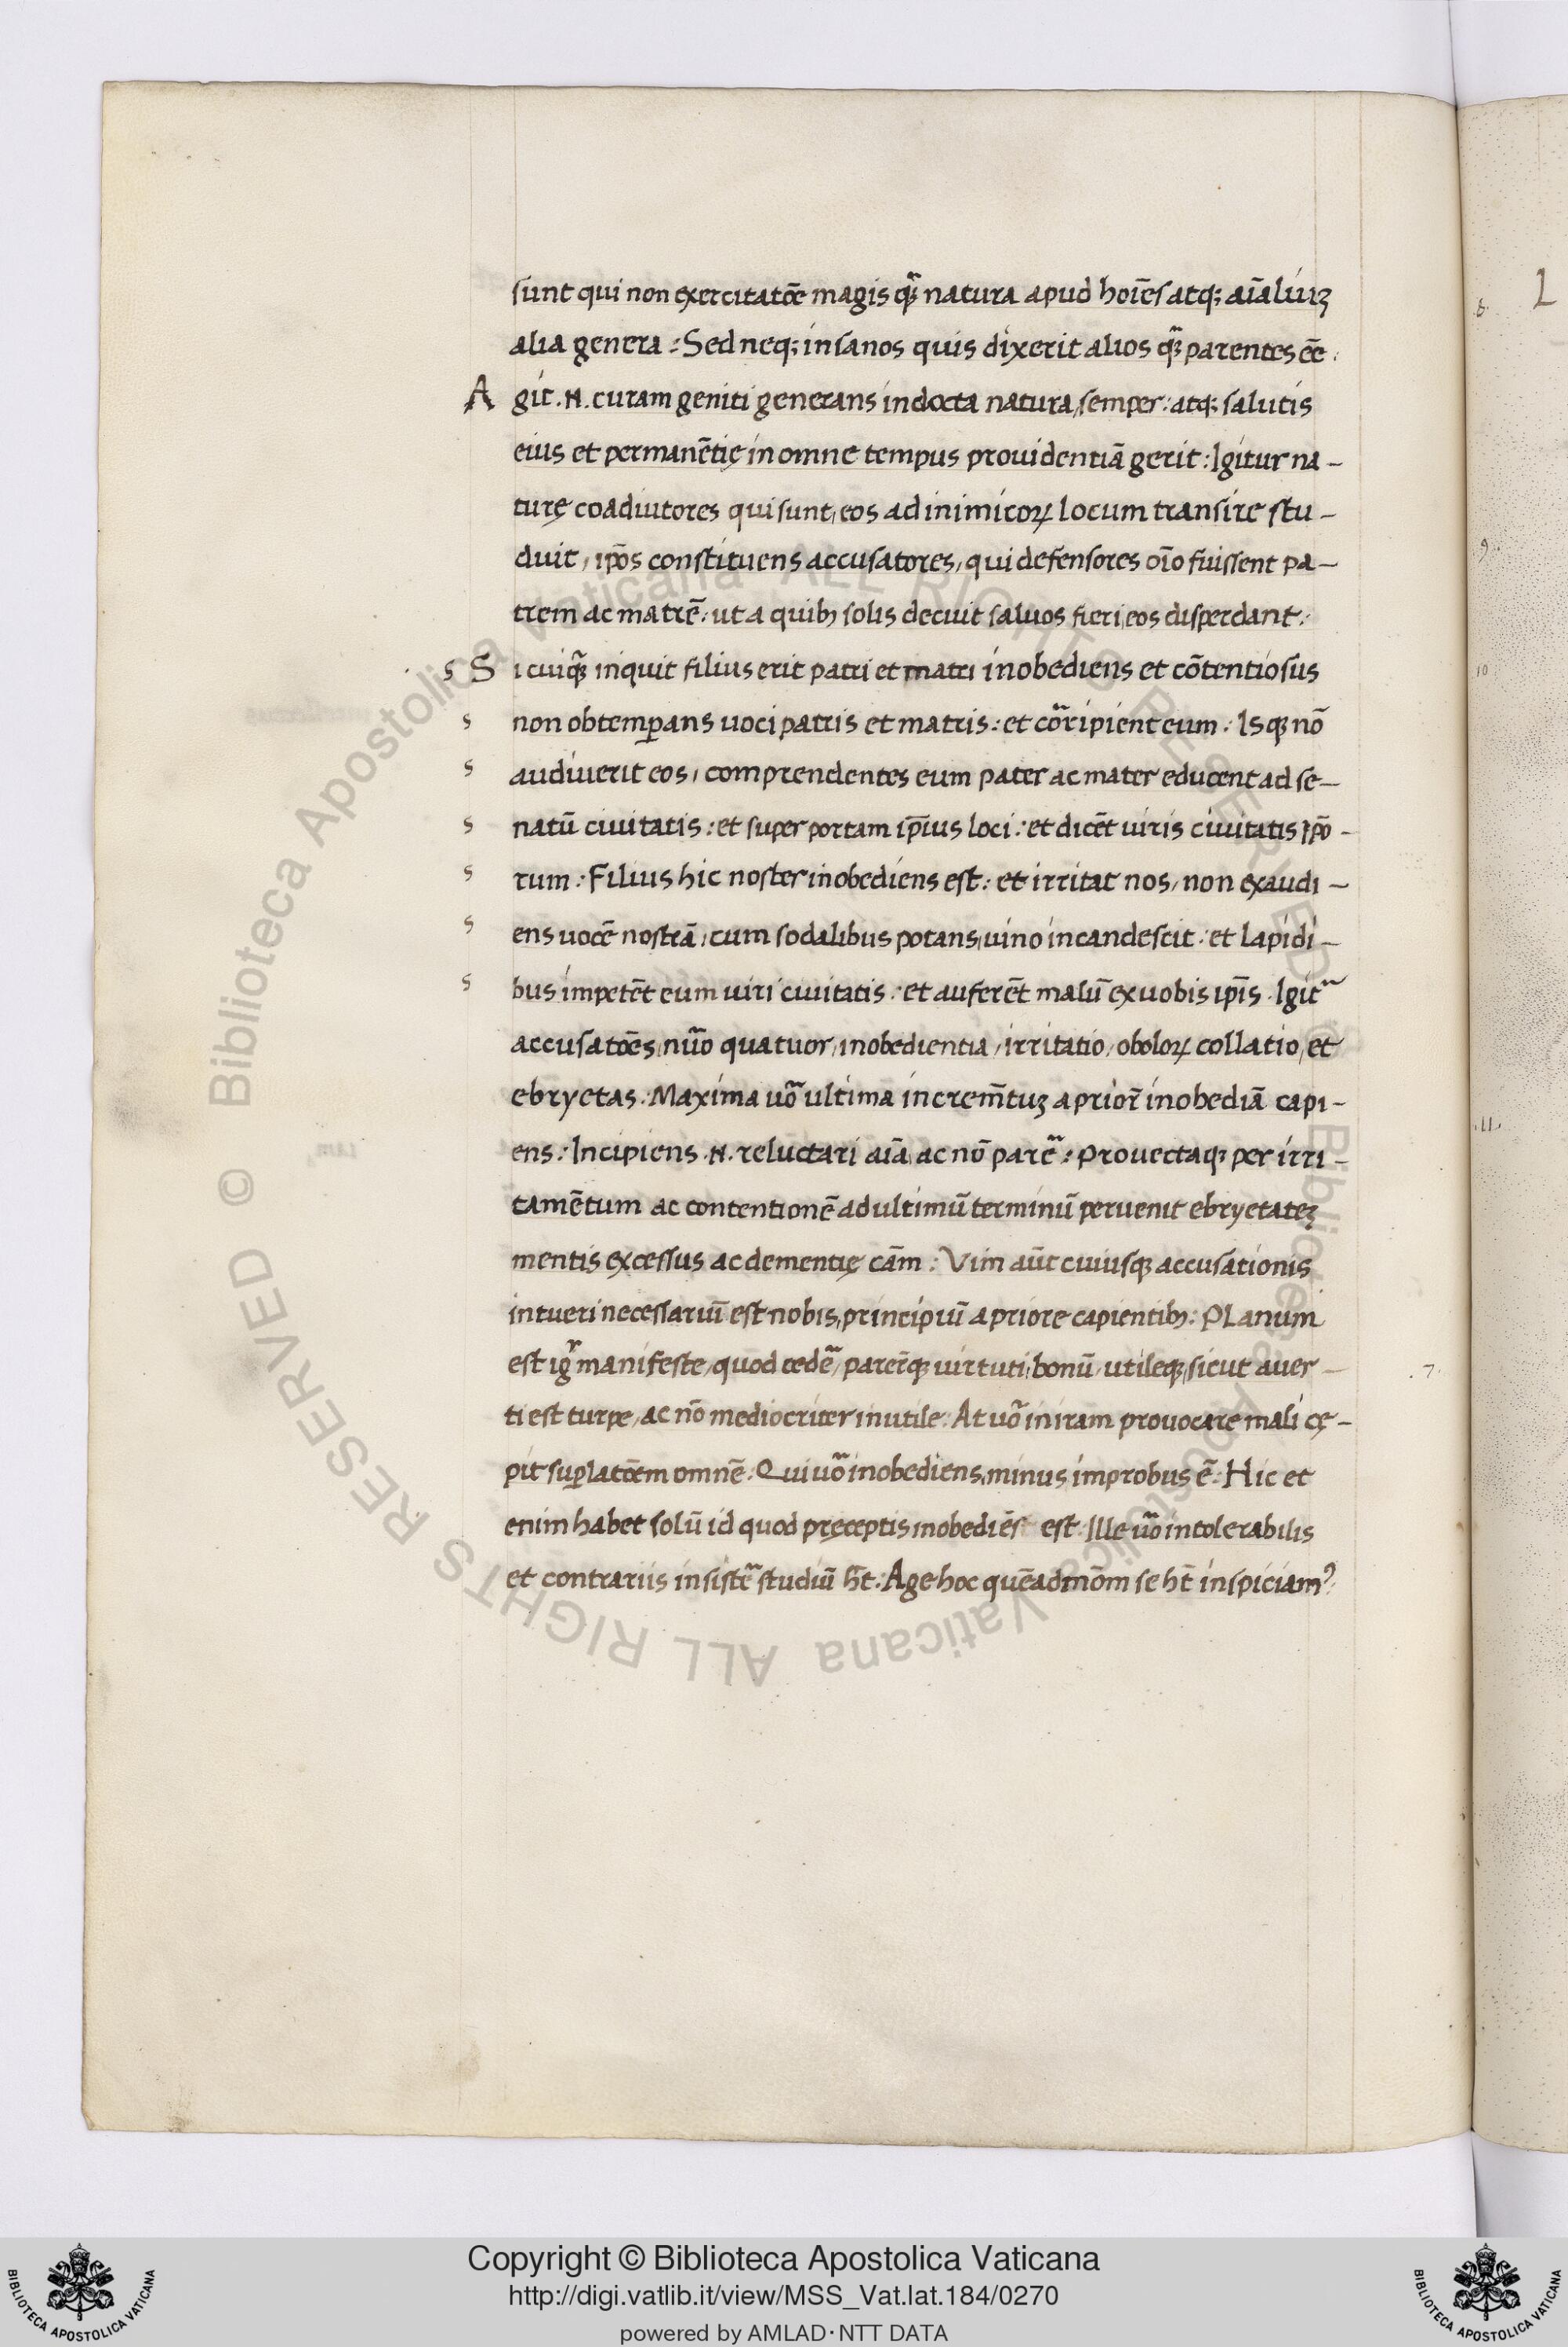 sunt qui non exercitatōe magis quā natura apud hoīes atq; aīaliuꝫ
alia genera : Sed neq; insanos quis dixerit alios quā parentes eē .
Agit . N . curam geniti generans indocta natura, semper : atq; salutis
eius et permanētię in omne tempus prouidentiā gerit : Igitur na-
turę coadiutores qui sunt, eos ad inimicoꝝ locum transire stu-
duit, ip̄os constituens accusatores, qui defensores oīo fuissent pa-
trem ac matrē : ut a quibꝫ solis decuit saluos fieri, eos disperdant :
s Si cuiꝙ̄ inquit filius erit patri et matri inobediens et cōtentiosus
s non obtemꝑans uoci patris et matris : et cōripient eum : Isqꝫ nō
s audiuerit eos, comprendentes eum pater ac mater educent ad se-
s natū ciuitatis : et super portam ip̄ius loci : et dicēt uiris ciuitatis ip̄o-
s rum : Filius hic noster inobediens est : et irritat nos, non exaudi-
s ens uocē nostrā, cum sodalibus potans, uino incandescit : et lapidi-
s bus impetēt eum uiri ciuitatis : et auferēt malū ex uobis ip̄is . Igit᷑
accusatōes, nūo quatuor, inobedientia, irritatio, oboloꝝ collatio, et
ebryetas : Maxima uō ultima increm̄tuꝫ a prior̄ inobediā capi-
ens : Incipiens . N . reluctari aīa, ac nō parē : Prouectaqꝫ per irri-
tamētum ac contentionē ad ultimū terminū peruenit ebryetateꝫ
mentis excessus ac dementię cām : Vim aūt cuiusqꝫ accusationis
intueri necessariū est nobis, principiū a priore capientibꝫ : Planum
est igr̄ manifeste, quod cedē, parerēqꝫ uirtuti, bonū, utileqꝫ, sicut auer-
ti est turpe, ac nō mediocriter inutile : At uō in iram prouocare mali cę-
pit suꝑlatōem omnē : Qui uō inobediens, minus improbus ē : Hic et
enim habet solū id quod pręceptis inobediēs est : Ille uō intolerabilis
et contrariis insistē studiū h̄t : Age hoc quēadmōm se h̄t inspiciamꝰ :
.7.
8.
L
9
10
.11.
© Biblioteca Apostolica Vaticana ALL RIGHTS RESERVED © Biblioteca Apostolica Vaticana ALL RIGHTS RESERVED
Copyright © Biblioteca Apostolica Vaticana
http://digi.vatlib.it/view/MSS_Vat.lat.184/0270
powered by AMLAD·NTT DATA
BIBLIOTECA APOSTOLICA VATICANA
BIBLIOTECA APOSTOLICA VATICANA